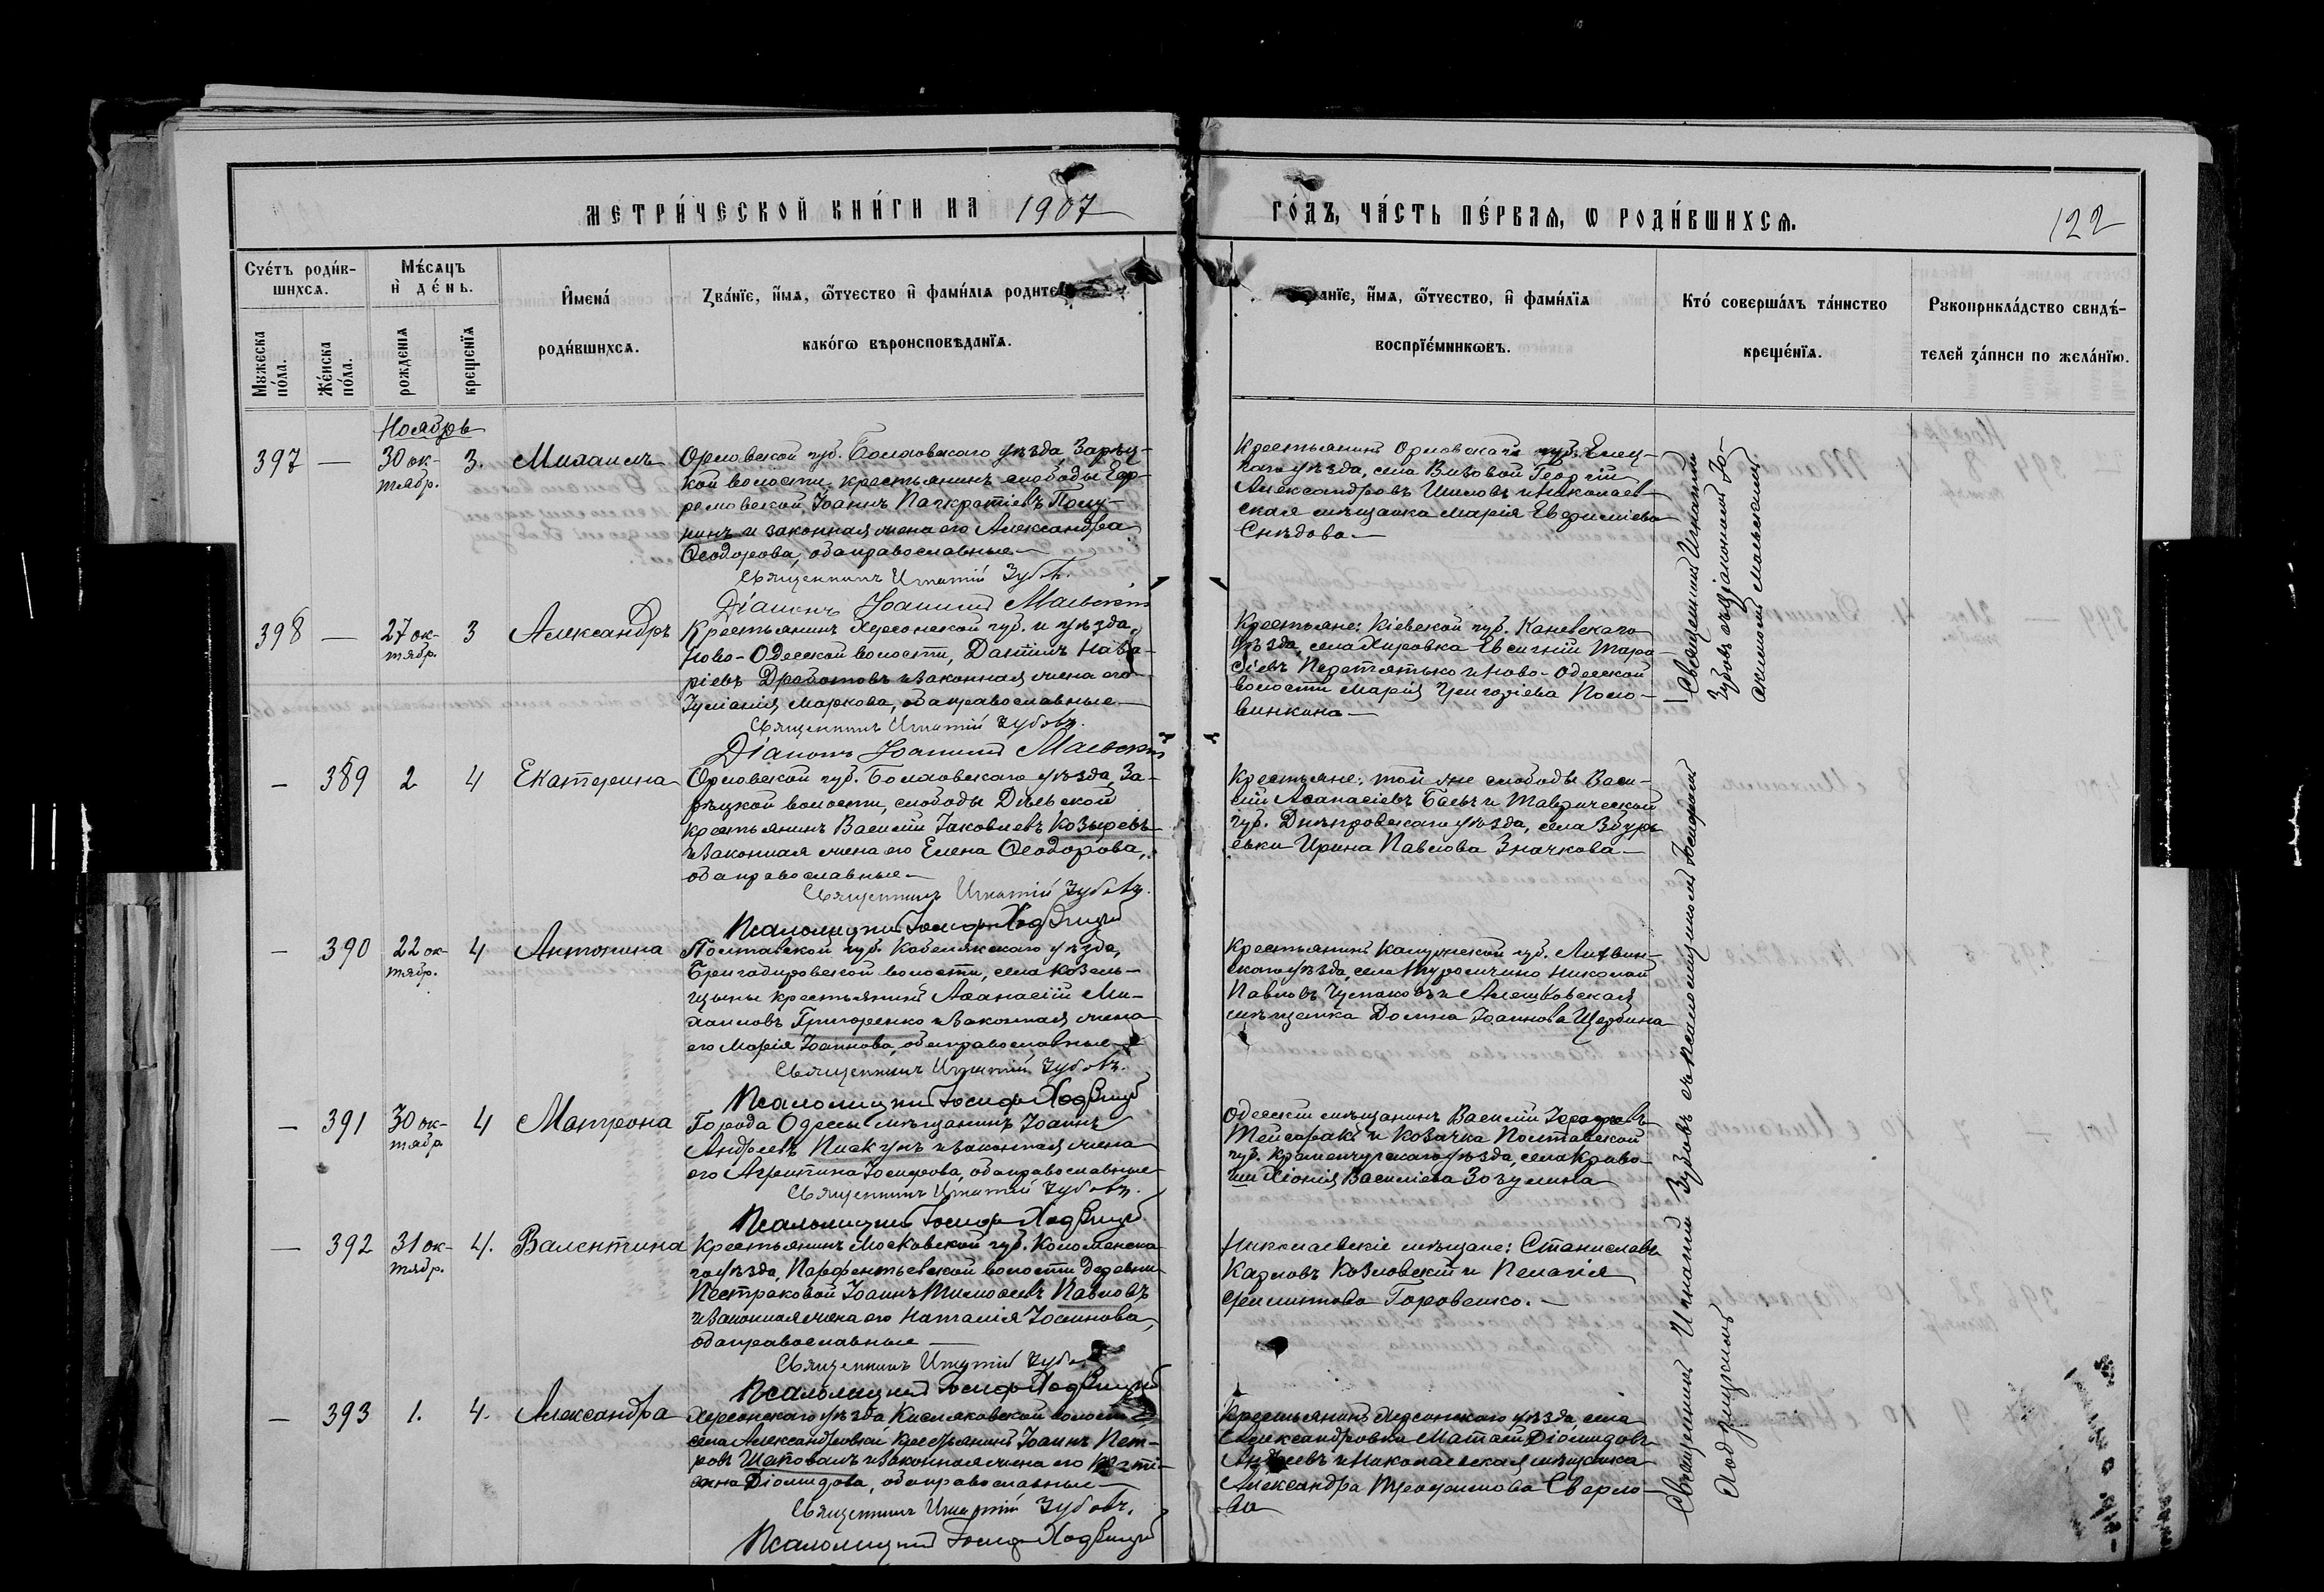 МЕТРИ́ЧЕСКОЙ КНИ́ГИ НА 1907
ГО́ДЪ, ЧА́СТЬ ПЕ́РВАѦ, Ѡ РОДИ́ВШИХСѦ.
122
Сче́тъ роди́в-
шихсѧ.
Мꙋжеска
по́ла.
Же́нска
по́ла.
Мѣ́сѧцъ
и҆ де́нь.
рожденїѧ
крещенїѧ
И҆мена́
роди́вшихсѧ.
Зва́нїе, и҆́мѧ, ѻ҆́тчество и҆ фами́лїѧ родите
како́гѡ вѣроисповѣданїѧ.
анїе, и҆́мѧ, ѻ҆́тчество, и҆ фами́лїѧ
воспрїе́мниковъ.
Кто́ соверша́лъ та́инство
креще́нїѧ.
Рꙋкоприкла́дство свидѣ́-
телей за́писи по жела́нїю.
Ноябрь
397
—
30 ок-
тябр.
3.
Михаилъ
Орловской губ. Болховскаго уѣзда, Зарѣц-
кой волости, крестьянинъ слободы Еф-
ремовской Іоаннъ Панкратіевъ Полу-
нинъ и законная жена его Александра
Ѳеодорова, оба православные.—
Священникъ Игнатій Зубовъ.
Діаконъ Іоанникій Маевскій
Крестьянинъ Орловской губ. Елец-
каго уѣзда, села Вязовой Георгій
Александровъ Шиловъ и Николаев-
ская мѣщанка Марія Евфиміева
Снѣдова.—
398
—
27 ок-
тябр.
3
Александръ
Крестьянинъ Херсонской губ. и уѣзда,
Ново-Одесской волости, Даніилъ
ріевъ Дроботовъ и законная жена его
Іуліанія Маркова, оба православные.—
Священникъ Игнатій Зубовъ.
Діаконъ Іоанникій Маевскій
Крестьяне: Кіевской губ. Каневскаго
уѣзда, села Хировка Евгеній Тара-
сіевъ и Ново-Одесской
волости Марія Григоріева Поло-
винкина.—
Священникъ Игнатій
Зубовъ съ діакономъ Іо-
анникіемъ Маевскимъ
—
389
2
4
Екатерина
Орловской губ. Болховскаго уѣзда, За-
рѣцкой волости, слободы
крестьянинъ Василій Іаковлевъ Козыревъ
и законная жена его Елена Ѳеодорова,
оба православные.—
Священникъ Игнатій Зубовъ.
Псаломщикъ Іосифъ
Крестьяне: той же слободы Васи-
лій Аѳанасіевъ Баевъ и Таврической
губ. Днѣпровскаго уѣзда, села Збурь-
евки Ирина Павлова Значкова.—
—
390
22 ок-
тябр.
4
Антонина
Полтавской губ. Кобелякскаго уѣзда,
Бригадировской волости, села Козель-
щины крестьянинъ Аѳанасій Ми-
хаиловъ Григоренко и законная жена
его Марія Іоаннова, оба православные.—
Священникъ Игнатій Зубовъ.
Псаломщикъ Іосифъ
Крестьянинъ Калужской губ. Лихвин-
скаго уѣзда, села Николай
Павловъ и Алешковская
мѣщанка Домна Іоаннова Щербина
—
391
30 ок-
тябр
4
Матрона
Города Одессы мѣщанинъ Іоаннъ
Андреевъ Пискунъ и законная жена
его Агриппина Іосифова, оба православные
Священникъ Игнатій Зубовъ.
Псаломщикъ Іосифъ
Одесскій мѣщанинъ Василій
и козачка Полтавской
губ. Кременчугскаго уѣзда, села
Хіонія Василіева Зозулина
—
392
31 ок-
тябр.
4.
Валентина
Крестьянинъ Московской губ. Коломенска-
го уѣзда, Парфентьевской волости деревни
Пестряковой Іоаннъ Тимоѳеевъ Павловъ
и законная жена его Наталія Іоаннова,
оба православные —
Священникъ Игнатій Зубовъ
Псаломщикъ Іосифъ
Николаевскіе мѣщане: Станиславъ
Карловъ Козловскій и Пелагія
Филиппова Горовенко.—
—
393
1.
4.
Александра
Херсонскаго уѣзда Кисляковской волости
села Александровки крестьянинъ Іоаннъ Пет-
ровъ Шаповалъ и законная жена его
Діомидова, оба православные.—
Священникъ Игнатій Зубовъ.
Псаломщикъ Іосифъ
Крестьянинъ Херсонскаго уѣзда, села
Александровка Матѳій Діомидовъ
и Николаевская мѣщанка
Александра Сверло-
ва
Священникъ Игнатій Зубовъ съ псаломщикомъ Іосифомъ